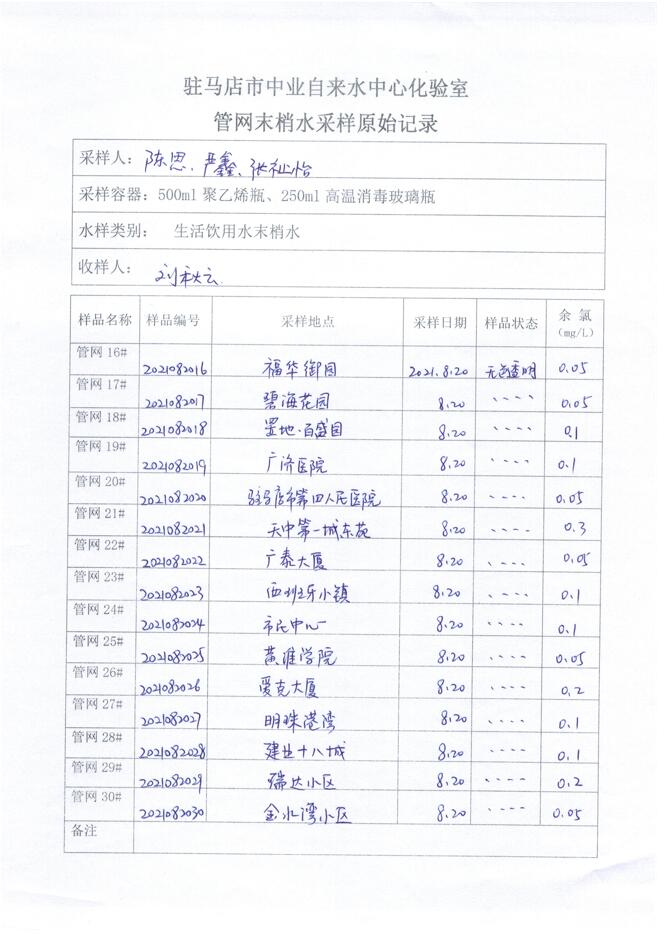 驻马店市中业自来水中心化验室
管网末梢水采样原始记录
采样人：陈思、严鑫、张祉怡
采样容器：500ml 聚乙烯瓶、250ml 高温消毒玻璃瓶
水样类别： 生活饮用水末梢水
收样人： 刘秋云
样品名称 样品编号 采样地点 采样日期 样品状态 余 氯（mg/L）
管网 16# 2021082016 福华御园 2021.8.20 无色透明 0.05
管网 17# 2021082017 碧海花园 8.20 、、、、 0.05
管网 18# 2021082018 置地·百盛园 8.20 、、、、 0.1
管网 19# 2021082019 广济医院 8.20 、、、、 0.1
管网 20# 2021082020 驻马店市第四人民医院 8.20 、、、、 0.05
管网 21# 2021082021 天中第一城东苑 8.20 、、、、 0.3
管网 22# 2021082022 广泰大厦 8.20 、、、、 0.05
管网 23# 2021082023 西班牙小镇 8.20 、、、、 0.1
管网 24# 2021082024 市民中心 8.20 、、、、 0.1
管网 25# 2021082025 黄淮学院 8.20 、、、、 0.05
管网 26# 2021082026 爱克大厦 8.20 、、、、 0.2
管网 27# 2021082027 明珠港湾 8.20 、、、、 0.1
管网 28# 2021082028 建业十八城 8.20 、、、、 0.1
管网 29# 2021082029 瑞达小区 8.20 、、、、 0.2
管网 30# 2021082030 金水湾小区 8.20 、、、、 0.05
备注